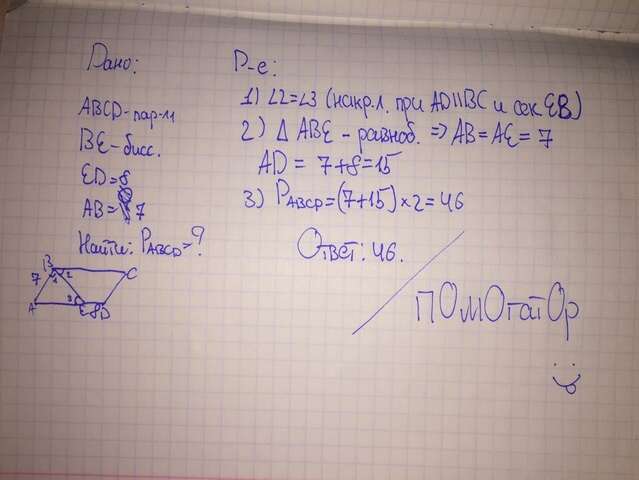 Дано:
ABCD-пар-м
BE-бисс.
ED=8
AB=7
Найти: P ABCD=?
B
7
1
2
C
A
3
E
8
D
Р-е:
1) ∠2=∠3 (накр.л. при AD||BC и сек EB)
2) Δ ABE - равноб. => AB=AE=7
AD = 7+8=15
3) P ABCD=(7+15)×2=46
Ответ: 46.
ПОмОгатОр